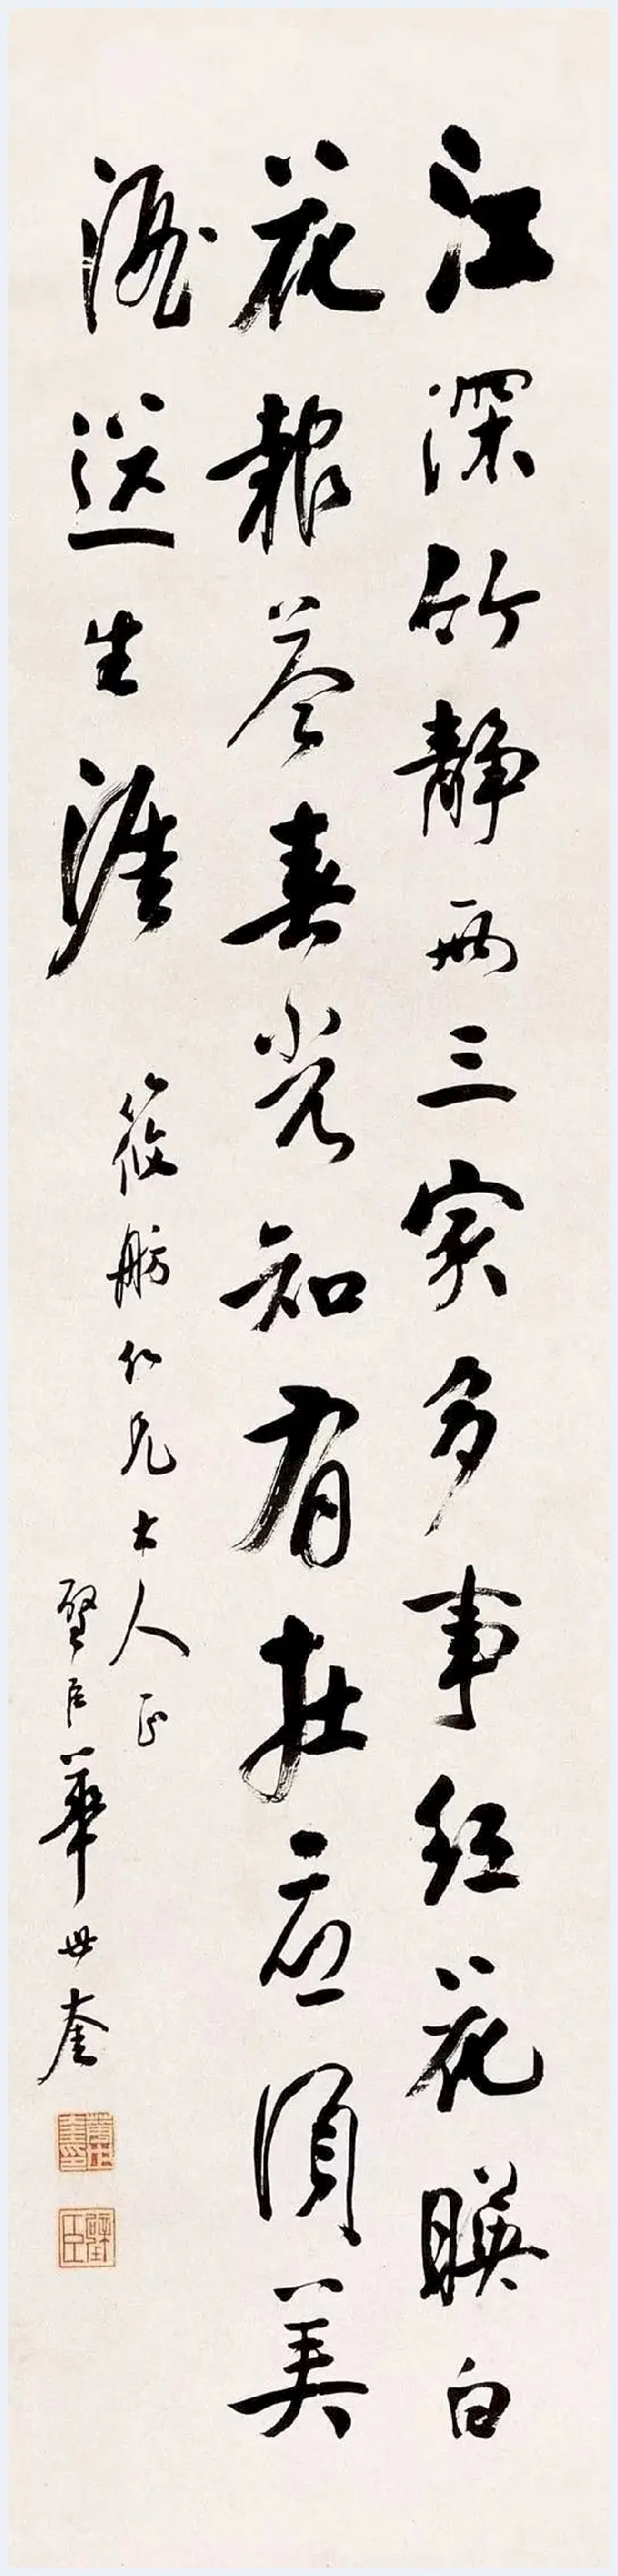 江深竹静两三家多事红花映白
花报答春光知有处应须美
酒送生涯
筱舫仁兄大人正
璧臣華世奎
華世奎印
璧臣